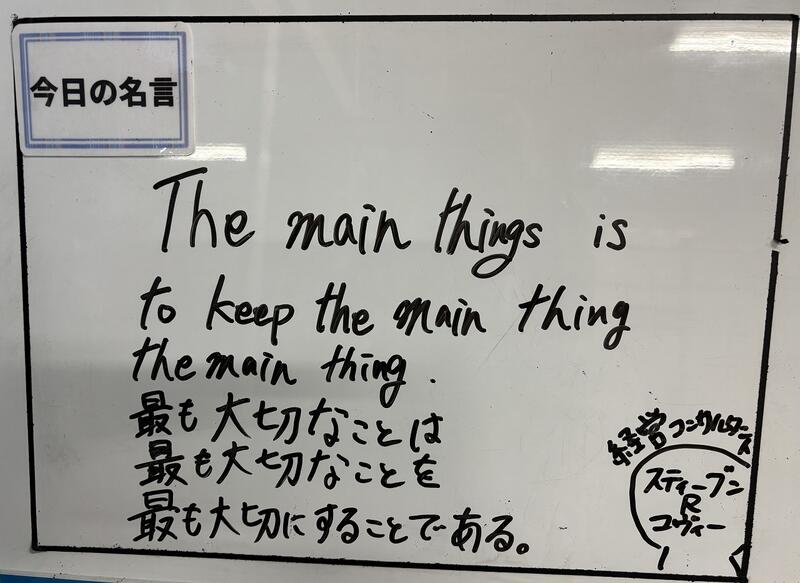 今日の名言
The main things is
to keep the main thing
the main thing.
最も大切なことは
最も大切なことを
最も大切にすることである。
経営コンサルタント
スティーブン
R
コヴィー